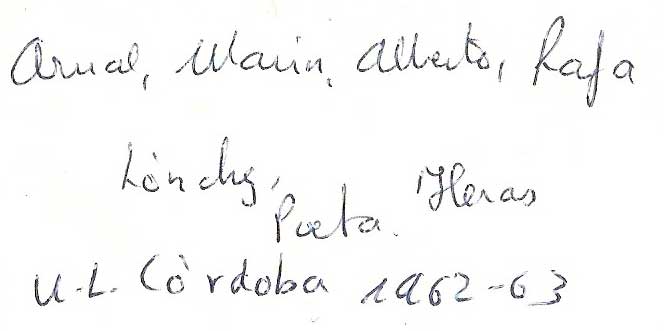 Arnal, Marin, Alberto, Rafa
Lónchy, Poeta. Heras
U.L. Córdoba 1962-63